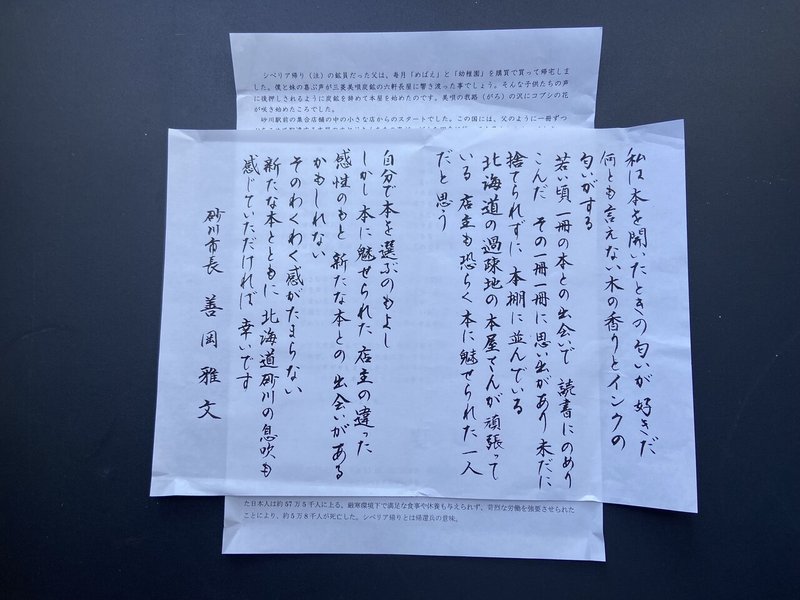 シベリア帰り（注）の鉱員だった父は、毎月「めばえ」と「幼稚園」を購買で買って帰宅しま
した。僕と妹の喜ぶ声が三菱美唄炭鉱の六軒長屋に響き渡った事でしょう。そんな子供たちの声
に後押しされるように炭鉱を辞めて本屋を始めたのです。美唄の我路（がろ）の沢にコブシの花
が咲き始めたころでした。
砂川駅前の集合店舗の中の小さな店からのスタートでした。この国には、父のように一冊ずつ
私は本を開いたときの匂いが好きだ
何とも言えない木の香りとインクの
匂いがする
若い頃一冊の本との出会いで 読書にのめり
こんだ その一冊一冊に思い出があり 未だに
捨てられずに 本棚に並んでいる
北海道の過疎地の本屋さんが頑張って
いる 店主も恐らく本に魅せられた一人
だと思う
自分で本を選ぶのもよし
しかし本に魅せられた店主の違った
感性のもと 新たな本との出会いがある
かもしれない
そのわくわく感がたまらない
新たな本とともに 北海道砂川の息吹も
感じていただければ 幸いです
砂川市長 善岡雅文
た日本人は約57万5千人に上る。厳寒環境下で満足な食事や休養も与えられず、苛烈な労働を強要させられた
ことにより、約5万8千人が死亡した。シベリア帰りとは帰還兵の意味。